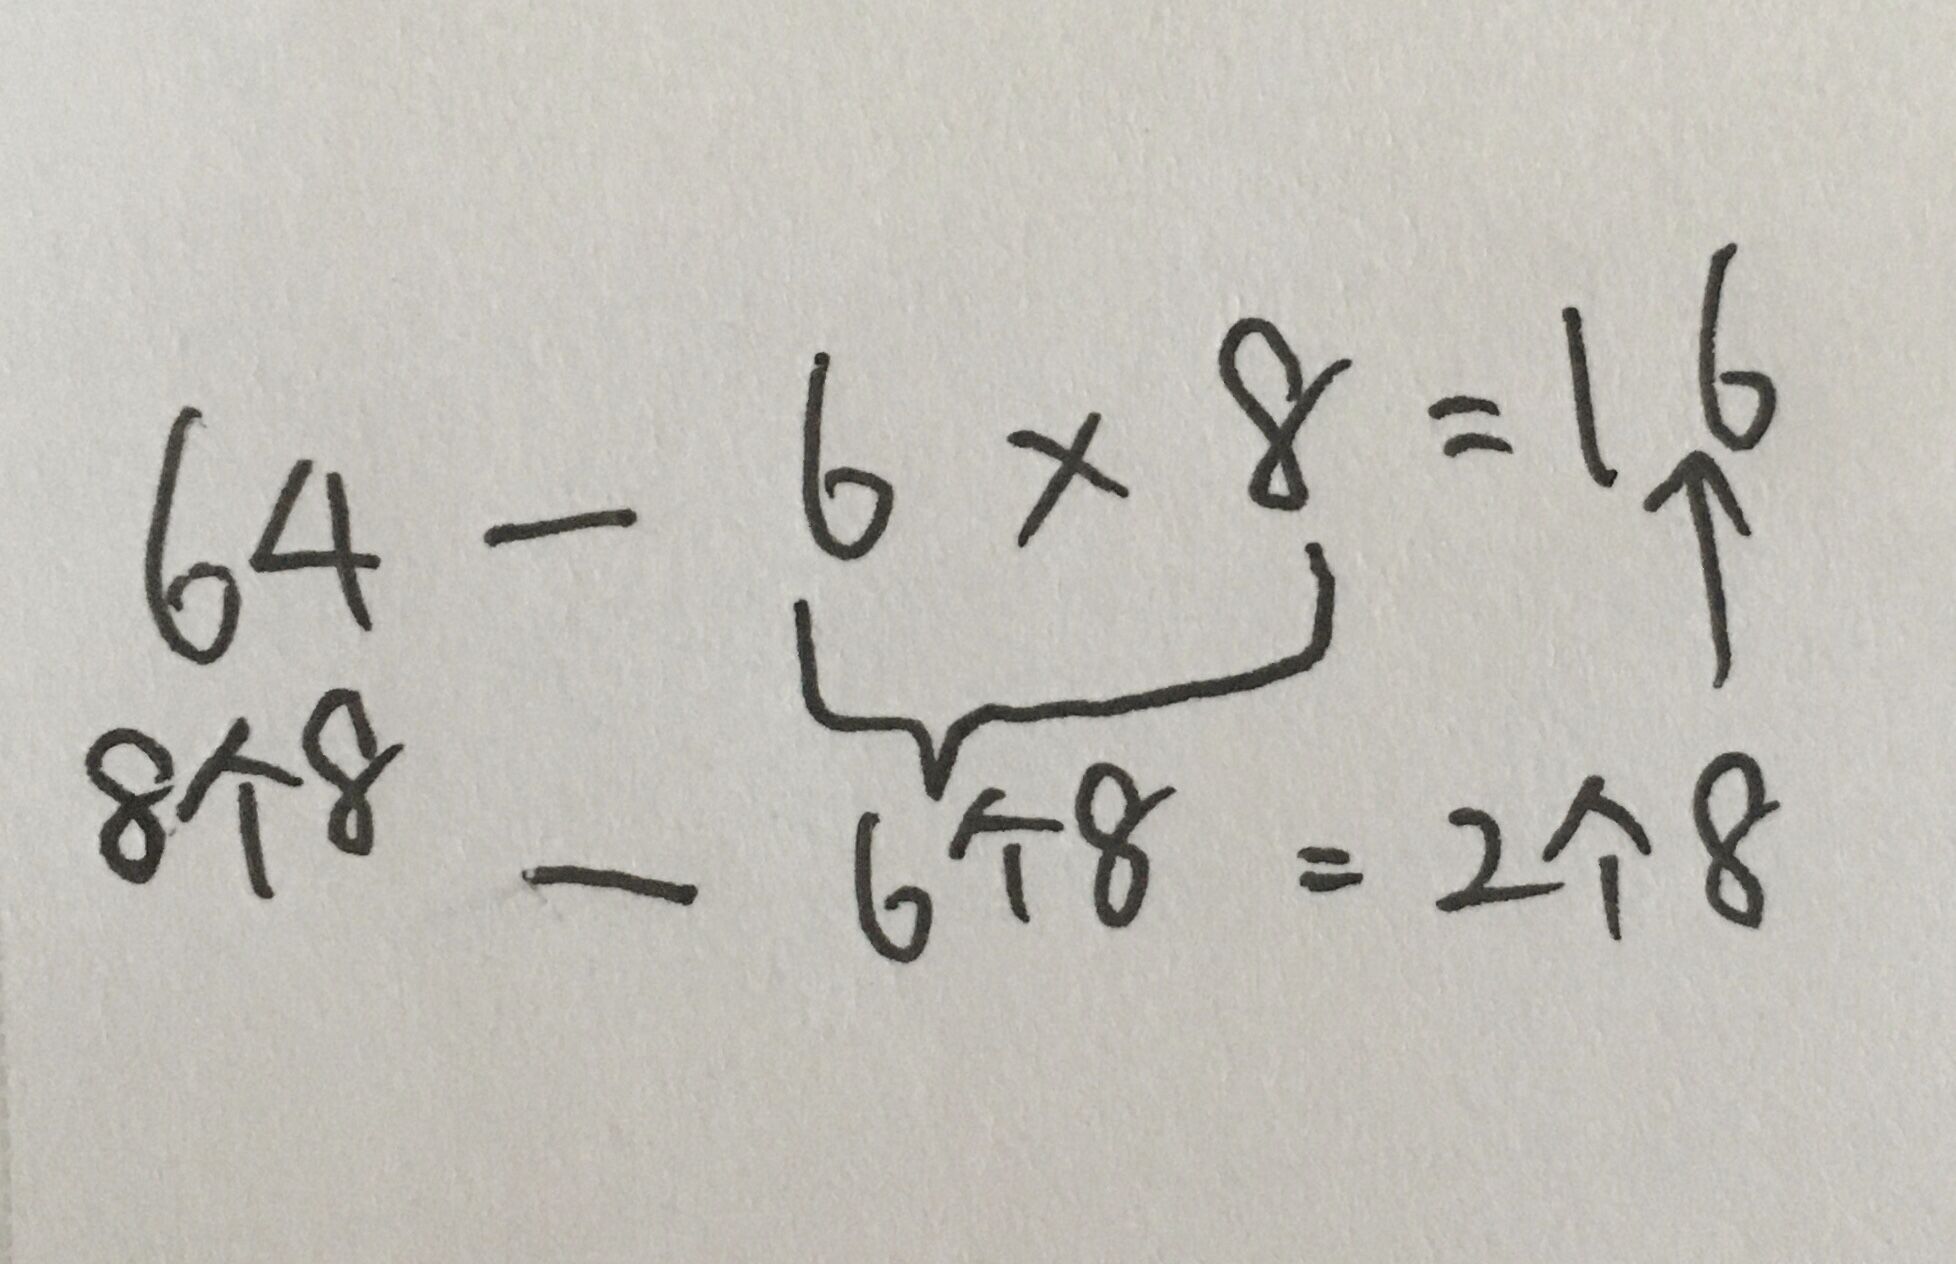 64 - 6 × 8 = 16
8个8 - 6个8 = 2个8